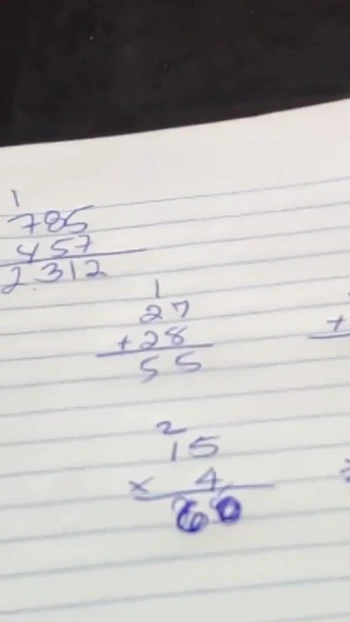 1
785
457
2312
1
27
+28
55
+
2
15
x 4
60